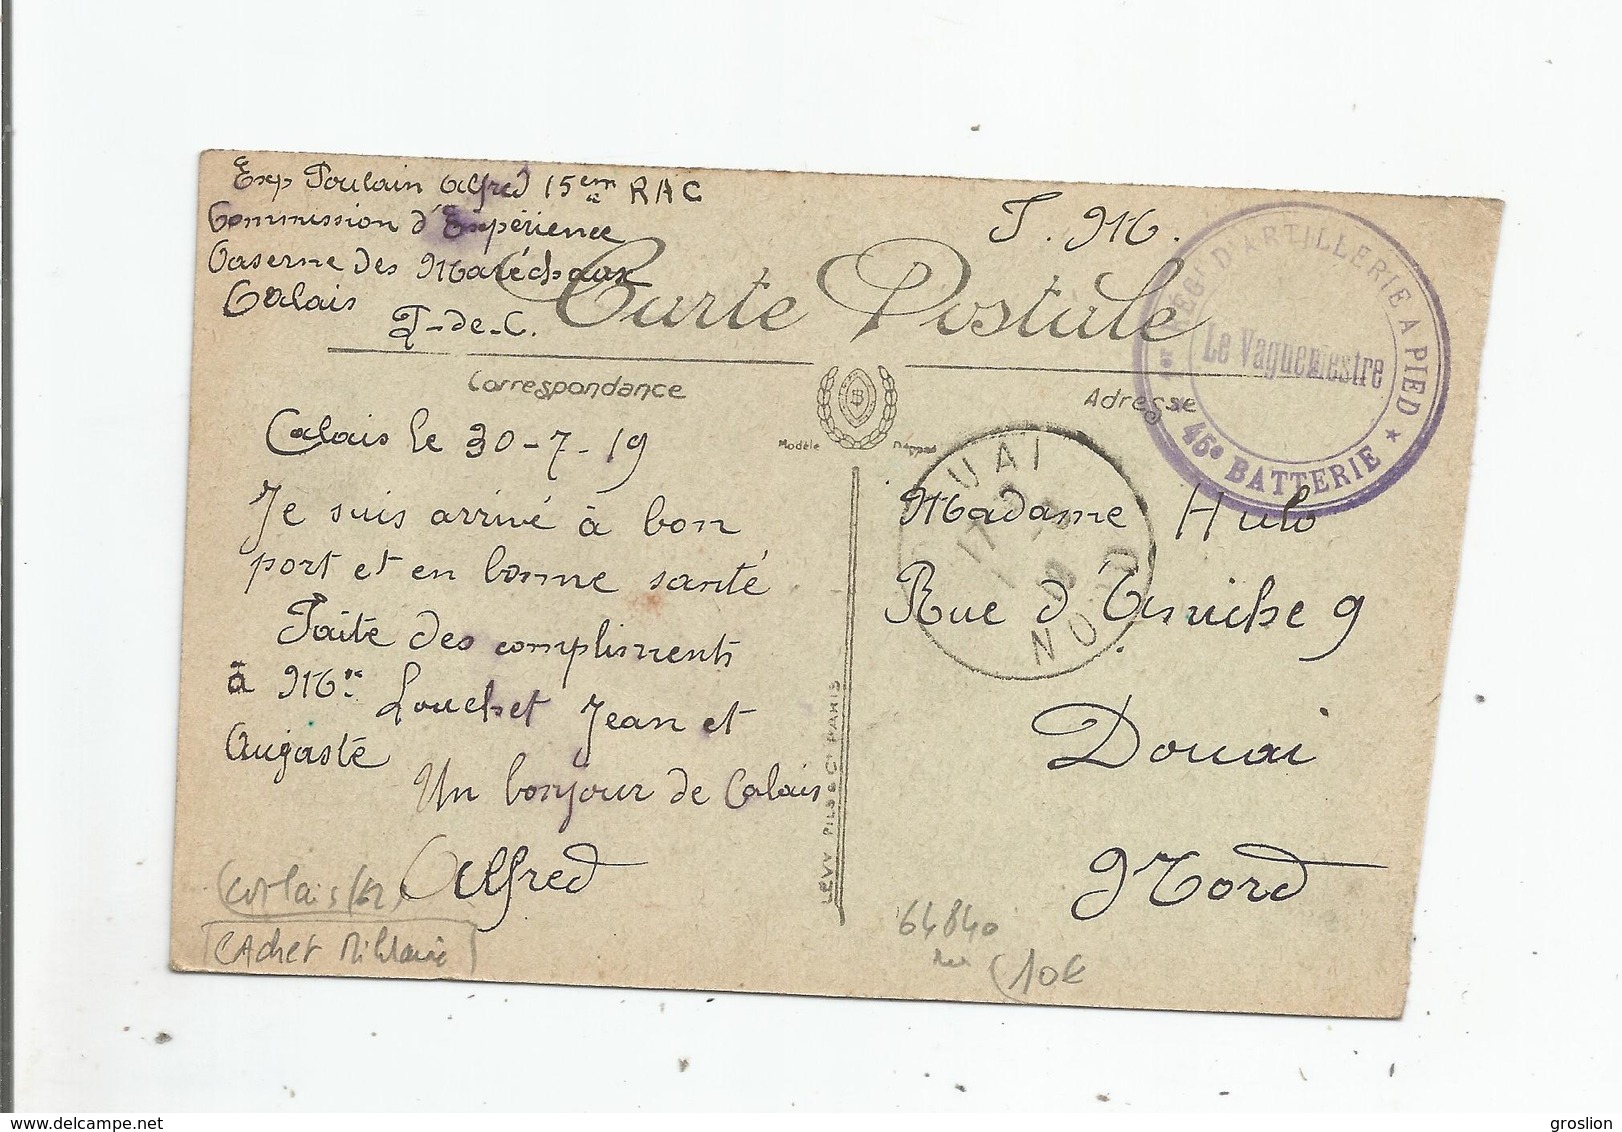 Exp Poulain Alfred 15em à RAC
Commission d'Expérience
Caserne des Maréchaux
Calais
P-de-C.
F. M.
Carte Postale
Correspondance
Adresse
Modèle Déposé
1er RÉGt D'ARTILLERIE A PIED
Le Vaguemestre
★ 45e BATTERIE ★
Calais le 30-7-19
Je suis arrivé à bon
port et en bonne santé
Faite des compliments
à Mr Louchet Jean et
Augaste
Un bonjour de Calais
Alfred
DOUAI
17
NORD
Madame Hulo
Rue d' 9
Douai
Nord
LÉVY FILS & Cie PARIS
Cachet Militaire
64840
10€
groslion